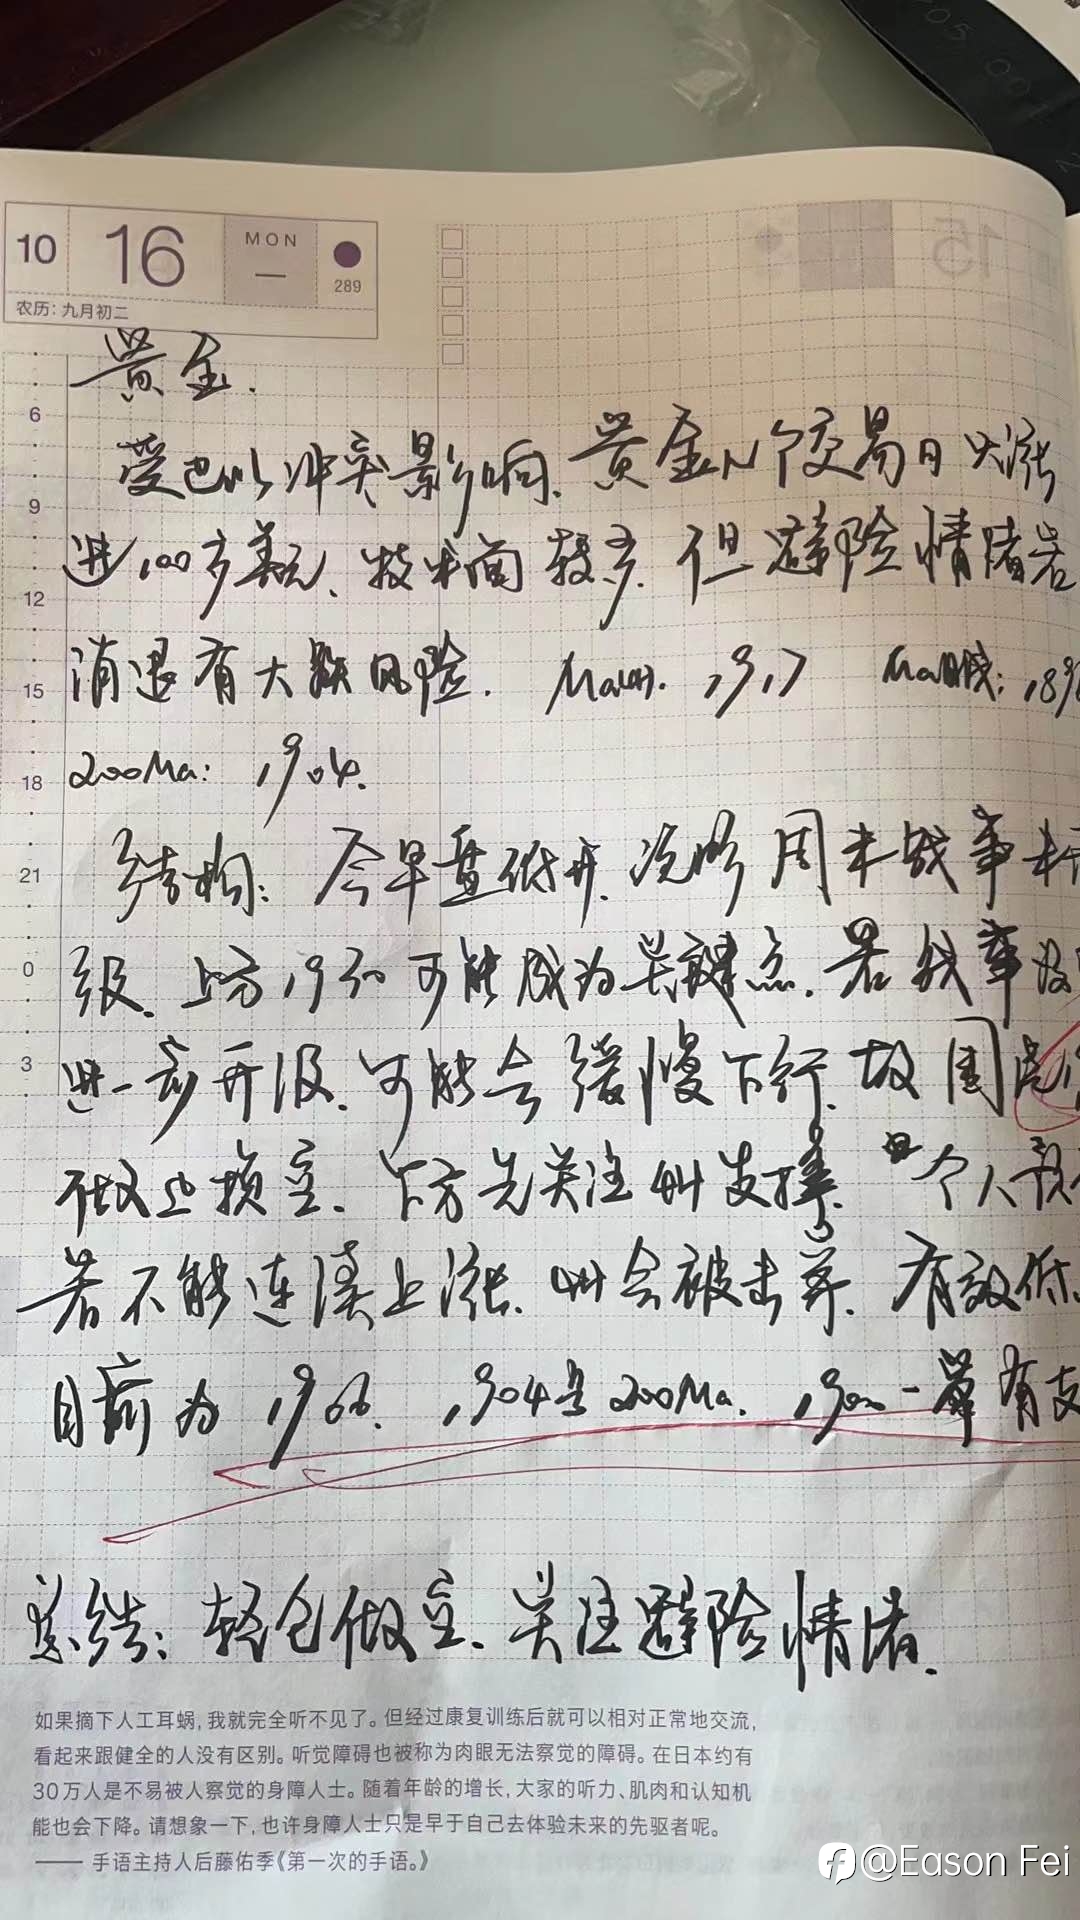 10 16 MON 一 289
农历：九月初二
15
黄金.
6
受巴以冲突影响.黄金个交易日大涨
9
近100多美元、技术面较多.但避险情绪若
12
消退有大跌风险. Ma4H. 1917 Ma日线: 189
15
200Ma: 1904.
18
结构: 今早盘低开.说明周末战事未
21
级.上方1930可能成为关键点.若战事没
0
进一步升级.可能会缓慢下行.故
3
不做止损空.下方先关注4H支撑. 个人
若不能连续上涨.4H会被击穿.有效低
目前为 1904是200Ma. 1900一带有支
总结: 轻仓做空.关注避险情绪.
如果摘下人工耳蜗，我就完全听不见了。但经过康复训练后就可以相对正常地交流，
看起来跟健全的人没有区别。听觉障碍也被称为肉眼无法察觉的障碍。在日本约有
30万人是不易被人察觉的身障人士。随着年龄的增长，大家的听力、肌肉和认知机
能也会下降。请想象一下，也许身障人士只是早于自己去体验未来的先驱者呢。
—— 手语主持人后藤佑季《第一次的手语。》
@Eason Fei